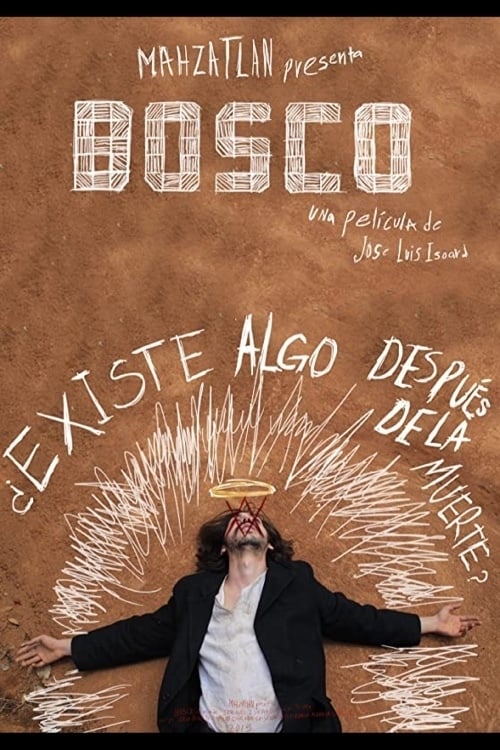 MAHZATLAN presenta
BOSCO
UNA película de
JOSE LUIS ISOARD
¿EXISTE ALGO DESPUÉS
DE LA
MUERTE?
MAHZATLAN